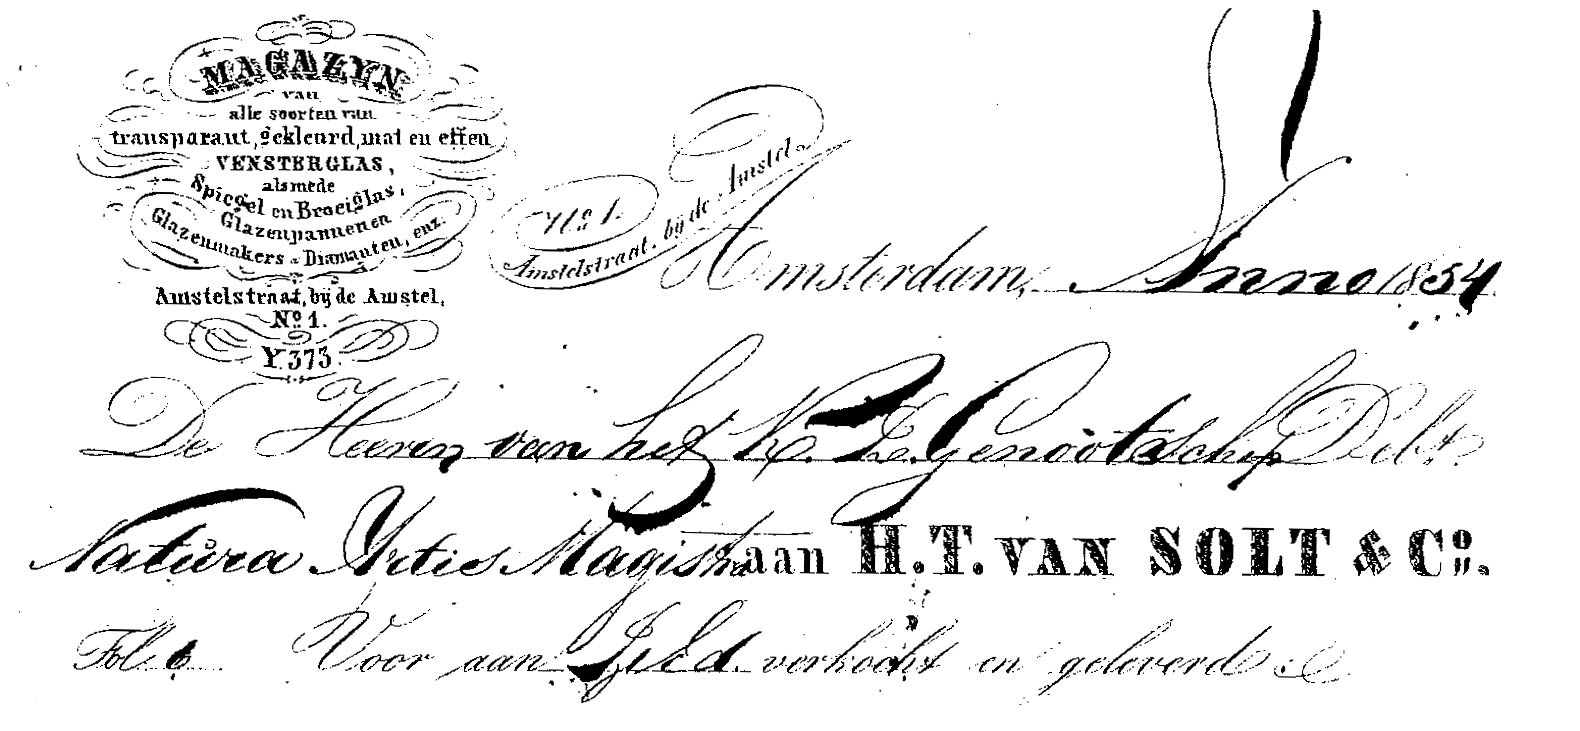 MAGAZYN
van
alle soorten van
transparant, gekleurd, mat en effen
VENSTERGLAS,
alsmede
Spiegel en Broeiglas,
Glazenpannen en
Glazenmakers Diamanten, enz.
Amstelstraat, bij de Amstel,
No. 1.
Y. 373.
No. 1.
Amstelstraat, bij de Amstel.
Amsterdam, Anno 1854
De Heeren van het K. Z. Genootschap Debt.
Natura Artis Magistra aan H. T. VAN SOLT & Co.
Fol. 6 Voor aan verkocht en geleverd: